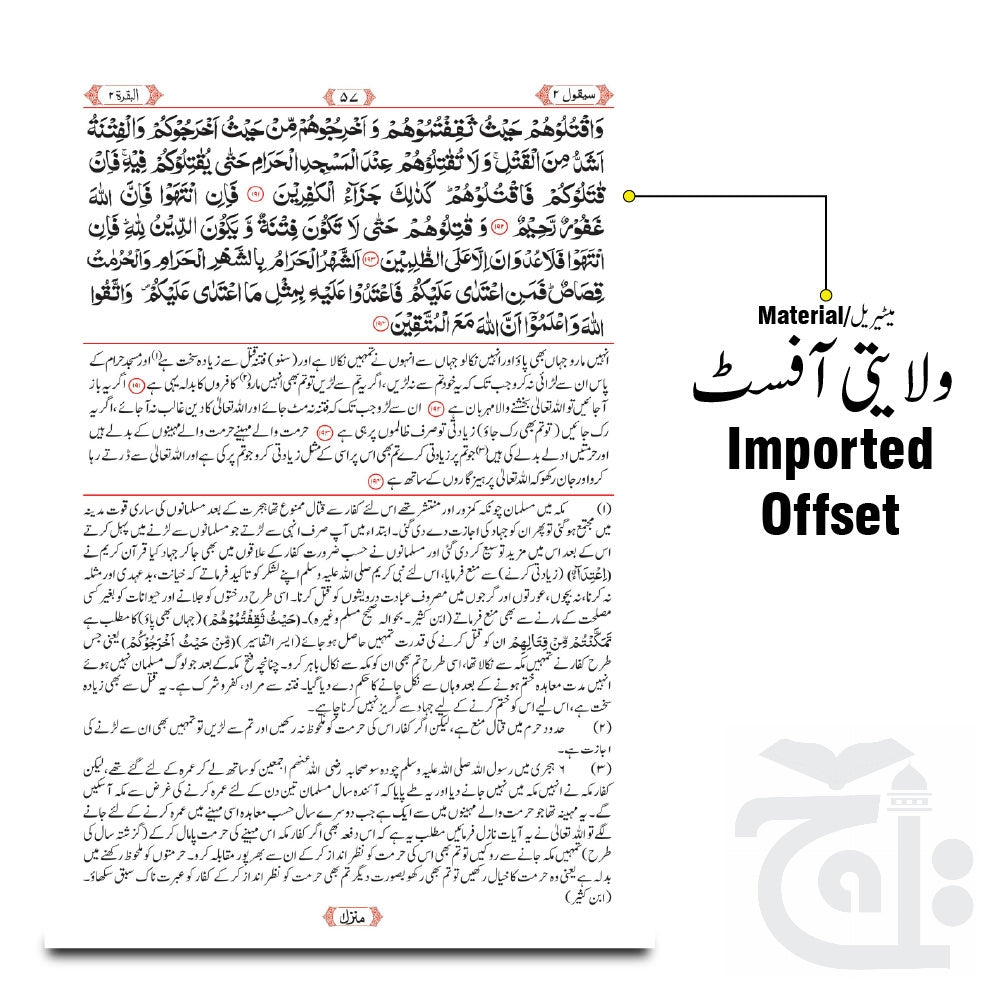 سیقول ۲
۵۷
البقرۃ ۲
وَاقْتُلُوْهُمْ حَيْثُ ثَقِفْتُمُوْهُمْ وَ اَخْرِجُوْهُمْ مِّنْ حَيْثُ اَخْرَجُوْكُمْ وَالْفِتْنَةُ
اَشَدُّ مِنَ الْقَتْلِ ۚ وَ لَا تُقٰتِلُوْهُمْ عِنْدَ الْمَسْجِدِ الْحَرَامِ حَتّٰى يُقٰتِلُوْكُمْ فِيْهِ ۚ فَاِنْ
قٰتَلُوْكُمْ فَاقْتُلُوْهُمْ ؕ كَذٰلِكَ جَزَآءُ الْكٰفِرِيْنَ ۱۹۱ فَاِنِ انْتَهَوْا فَاِنَّ اللّٰهَ
غَفُوْرٌ رَّحِيْمٌ ۱۹۲ وَ قٰتِلُوْهُمْ حَتّٰى لَا تَكُوْنَ فِتْنَةٌ وَّ يَكُوْنَ الدِّيْنُ لِلّٰهِ ؕ فَاِنِ
انْتَهَوْا فَلَا عُدْوَانَ اِلَّا عَلَى الظّٰلِمِيْنَ ۱۹۳ اَلشَّهْرُ الْحَرَامُ بِالشَّهْرِ الْحَرَامِ وَالْحُرُمٰتُ
قِصَاصٌ ؕ فَمَنِ اعْتَدٰى عَلَيْكُمْ فَاعْتَدُوْا عَلَيْهِ بِمِثْلِ مَا اعْتَدٰى عَلَيْكُمْ ۪ وَاتَّقُوا
اللّٰهَ وَاعْلَمُوْٓا اَنَّ اللّٰهَ مَعَ الْمُتَّقِيْنَ ۱۹۴
انہیں مارو جہاں بھی پاؤ اور انہیں نکالو جہاں سے انہوں نے تمہیں نکالا ہے اور (سنو) فتنہ قتل سے زیادہ سخت ہے (۱) اور مسجد حرام کے
پاس ان سے لڑائی نہ کرو جب تک کہ یہ خود تم سے نہ لڑیں، اگر یہ تم سے لڑیں تو تم بھی انہیں مارو (۲) کافروں کا بدلہ یہی ہے ۱۹۱ اگر یہ باز
آ جائیں تو اللہ تعالیٰ بخشنے والا مہربان ہے ۱۹۲ ان سے لڑو جب تک کہ فتنہ نہ مٹ جائے اور اللہ تعالیٰ کا دین غالب نہ آ جائے، اگر یہ
رک جائیں (تو تم بھی رک جاؤ) زیادتی تو صرف ظالموں پر ہی ہے ۱۹۳ حرمت والے مہینے حرمت والے مہینوں کے بدلے ہیں
اور حرمتیں ادلے بدلے کی ہیں (۳) جو تم پر زیادتی کرے تم بھی اس پر اسی کے مثل زیادتی کرو جو تم پر کی ہے اور اللہ تعالیٰ سے ڈرتے رہا
کرو اور جان رکھو کہ اللہ تعالیٰ پرہیزگاروں کے ساتھ ہے ۱۹۴
(۱) مکہ میں مسلمان چونکہ کمزور اور منتشر تھے اس لئے کفار سے قتال ممنوع تھا ہجرت کے بعد مسلمانوں کی ساری قوت مدینہ
میں مجتمع ہو گئی تو پھر ان کو جہاد کی اجازت دے دی گئی۔ ابتداء میں آپ صرف انہی سے لڑتے جو مسلمانوں سے لڑنے میں پہل کرتے
اس کے بعد اس میں مزید توسیع کر دی گئی اور مسلمانوں نے حسب ضرورت کفار کے علاقوں میں بھی جا کر جہاد کیا قرآن کریم نے
(اِعْتِدَآءٌ) (زیادتی کرنے) سے منع فرمایا، اس لئے نبی کریم صلی اللہ علیہ وسلم اپنے لشکر کو تاکید فرماتے کہ خیانت، بدعہدی اور مثلہ
نہ کرنا، نہ بچوں، عورتوں اور گرجوں میں مصروف عبادت درویشوں کو قتل کرنا۔ اسی طرح درختوں کو جلانے اور حیوانات کو بغیر کسی
مصلحت کے مارنے سے بھی منع فرماتے (ابن کثیر۔ بحوالہ صحیح مسلم وغیرہ)۔ (حَيْثُ ثَقِفْتُمُوْهُمْ) (جہاں بھی پاؤ) کا مطلب ہے
تَمَكَّنْتُمْ مِّنْ قِتَالِهِمْ ان کو قتل کرنے کی قدرت تمہیں حاصل ہو جائے (ایسر التفاسیر) (مِّنْ حَيْثُ اَخْرَجُوْكُمْ) یعنی جس
طرح کفار نے تمہیں مکہ سے نکالا تھا، اسی طرح تم بھی ان کو مکہ سے نکال باہر کرو۔ چنانچہ فتح مکہ کے بعد جو لوگ مسلمان نہیں ہوئے
انہیں مدت معاہدہ ختم ہونے کے بعد وہاں سے نکل جانے کا حکم دے دیا گیا۔ فتنہ سے مراد، کفر و شرک ہے۔ یہ قتل سے بھی زیادہ
سخت ہے، اس لیے اس کو ختم کرنے کے لیے جہاد سے گریز نہیں کرنا چاہیے۔
(۲) حدود حرم میں قتال منع ہے، لیکن اگر کفار اس کی حرمت کو ملحوظ نہ رکھیں اور تم سے لڑیں تو تمہیں بھی ان سے لڑنے کی
اجازت ہے۔
(۳) ۶ ہجری میں رسول اللہ صلی اللہ علیہ وسلم چودہ سو صحابہ رضی اللہ عنہم اجمعین کو ساتھ لے کر عمرہ کے لئے گئے تھے، لیکن
کفار مکہ نے انہیں مکہ میں نہیں جانے دیا اور یہ طے پایا کہ آئندہ سال مسلمان تین دن کے لئے عمرہ کرنے کی غرض سے مکہ آ سکیں
گے۔ یہ مہینہ تھا جو حرمت والے مہینوں میں سے ایک ہے جب دوسرے سال حسب معاہدہ اسی مہینے میں عمرہ کرنے کے لئے جانے
لگے تو اللہ تعالیٰ نے یہ آیات نازل فرمائیں مطلب یہ ہے کہ اس دفعہ بھی اگر کفار مکہ اس مہینے کی حرمت پامال کر کے (گزشتہ سال کی
طرح) تمہیں مکہ جانے سے روکیں تو تم بھی اس کی حرمت کو نظر انداز کر کے ان سے بھرپور مقابلہ کرو۔ حرمتوں کو ملحوظ رکھنے میں
بدلہ ہے یعنی وہ حرمت کا خیال رکھیں تو تم بھی رکھو بصورت دیگر تم بھی حرمت کو نظر انداز کر کے کفار کو عبرت ناک سبق سکھاؤ۔
(ابن کثیر)
منزل
Material/میٹیریل
ولایتی آفسٹ
Imported
Offset